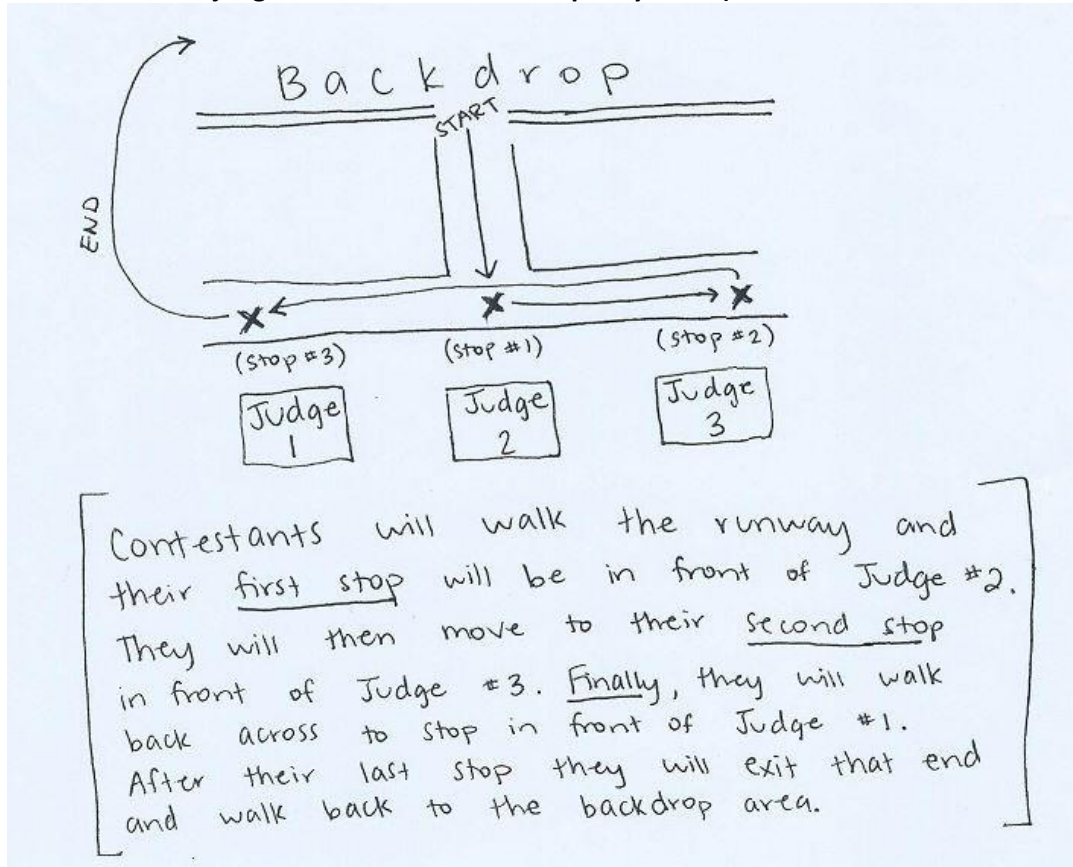 Backdrop
START
END
(Stop #3)
(Stop #1)
(Stop #2)
Judge
1
Judge
2
Judge
3
Contestants will walk the runway and
their first stop will be in front of Judge #2.
They will then move to their second stop
in front of Judge #3. Finally, they will walk
back across to stop in front of Judge #1.
After their last stop they will exit that end
and walk back to the backdrop area.